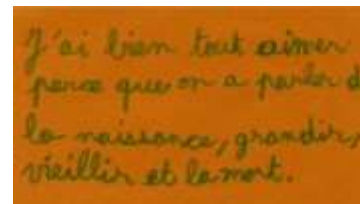 J'ai bien tout aimer
parce que on a parler d
la naissance, grandir,
vieillir et la mort.